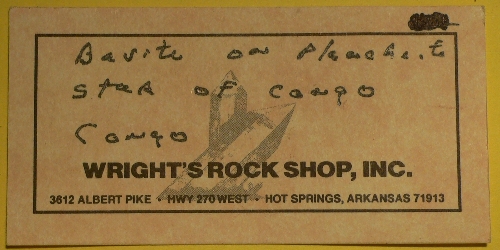 Barite on Planche.t
Star of Congo
Congo
WRIGHT'S ROCK SHOP, INC.
3612 ALBERT PIKE • HWY 270 WEST • HOT SPRINGS, ARKANSAS 71913